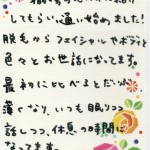 してもらい通い始めました!
脱毛からフェイシャルやボディと
色々とお世話になってます。
最初に比べるとだいぶ
薄くなり、いつも眠りつつ
話しつつ、休息の時間に
なってます。